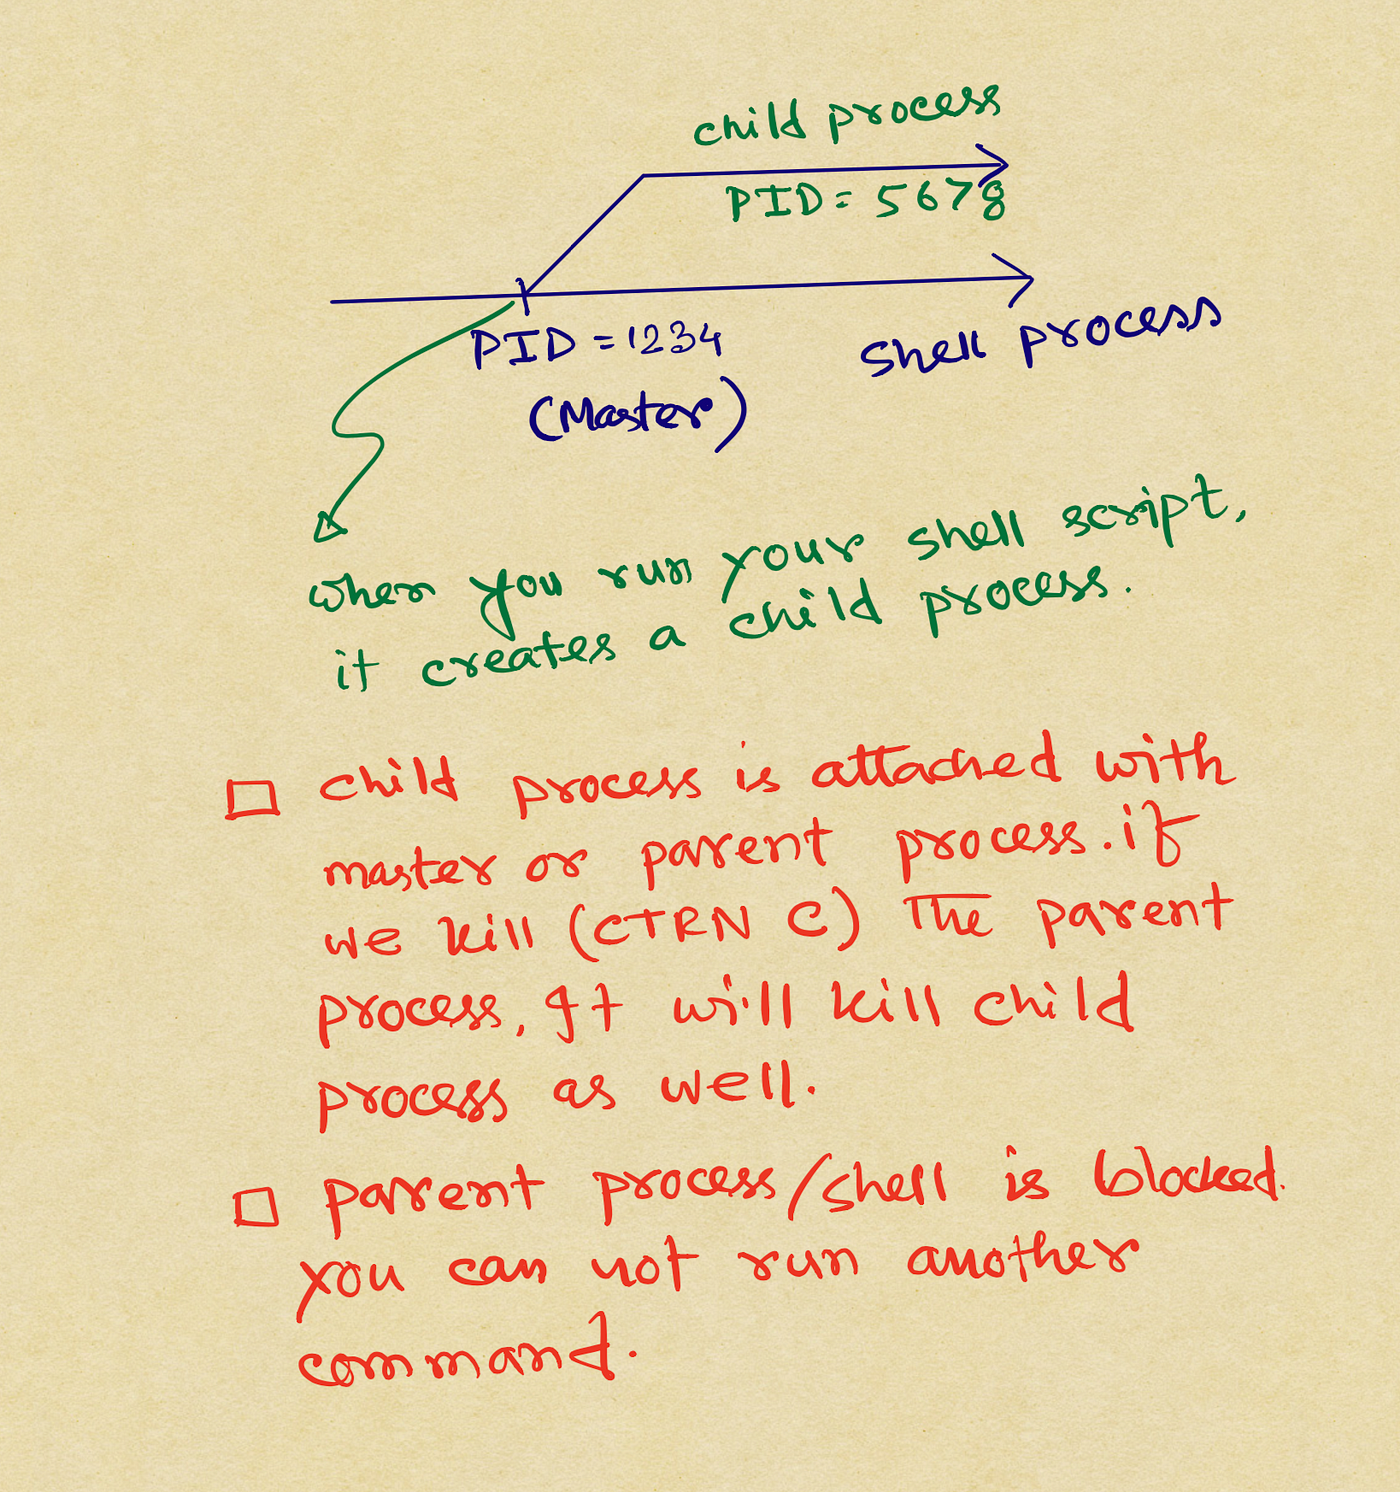 child process
PID = 5678
PID = 1234
(Master)
shell process
when you run your shell script,
it creates a child process.
child process is attached with
master or parent process. if
we kill (CTRN C) The parent
process, It will kill child
process as well.
parent process/shell is blocked.
you can not run another
command.